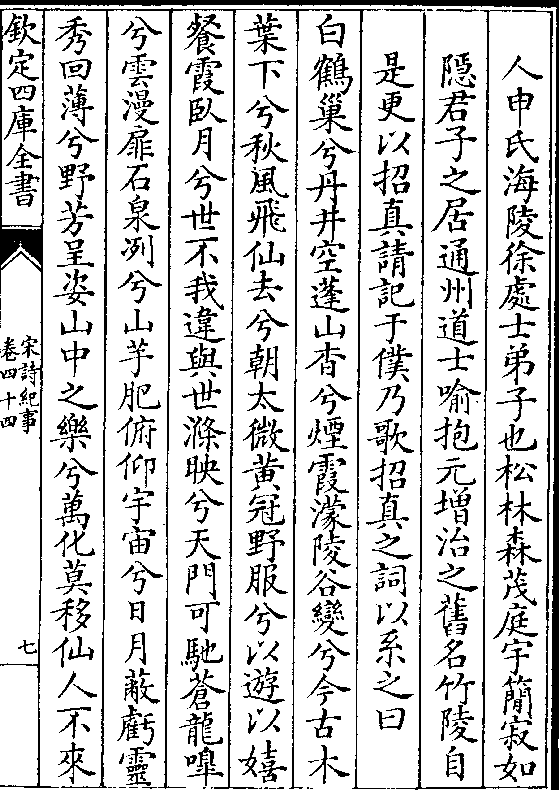 人申氏海陵徐處士弟子也松林森茂庭宇簡寂如
隱君子之居通州道士喻抱元增治之舊名竹陵自
是更以招真請記于僕乃歌招真之詞以系之曰
白鶴巢兮丹井空蓬山杳兮煙霞濛陵谷變兮今古木
葉下兮秋風飛仙去兮朝太微黃冠野服兮以遊以嬉
餐霞臥月兮世不我違與世滌映兮天門可馳蒼龍嘷
兮雲漫扉石泉冽兮山芋肥俯仰宇宙兮日月蔽虧靈
秀回薄兮野芳呈姿山中之樂兮萬化莫移仙人不來
欽定四庫全書
宋詩紀事
卷四十四
七